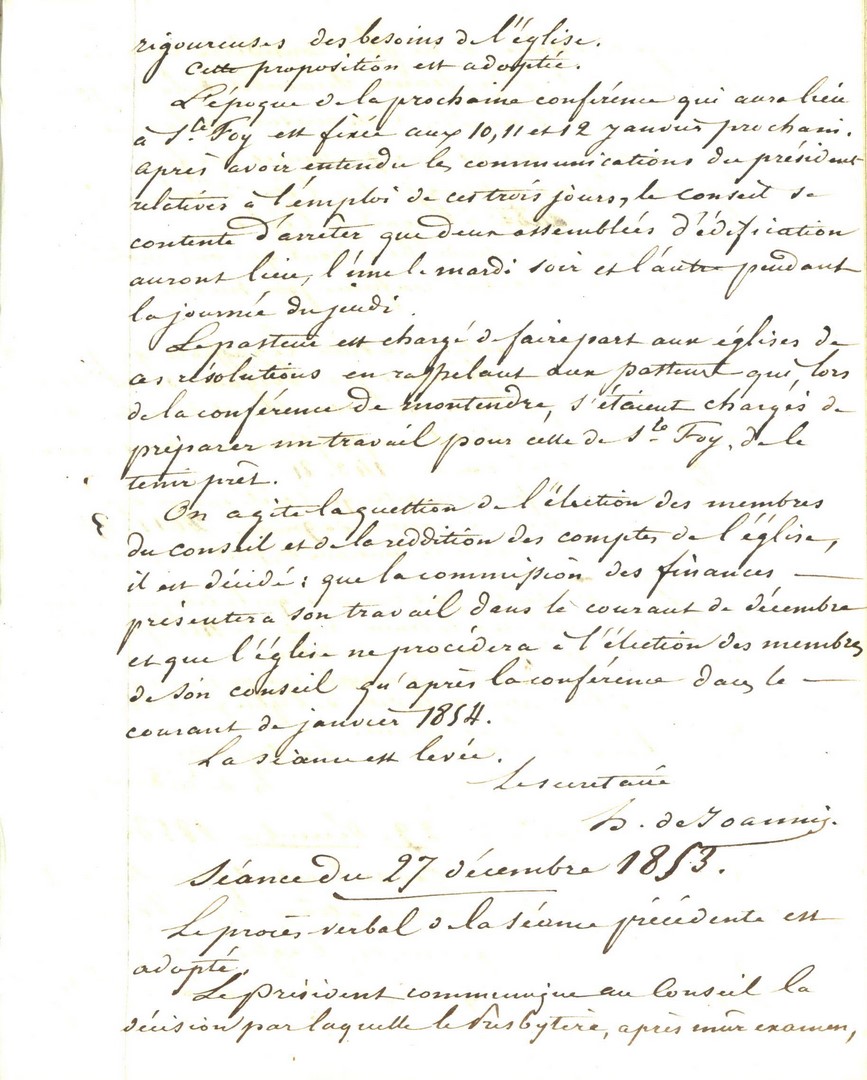 rigoureuses des besoins de l'église.
Cette proposition est adoptée.
L'époque de la prochaine conférence qui aura lieu
à Ste Foy est fixée aux 10, 11 et 12 janvier prochain.
Après avoir entendu les communications du président
relatives à l'emploi de ces trois jours, le conseil se
contente d'arrêter que deux assemblées d'édification
auront lieu, l'une le mardi soir et l'autre pendant
la journée du jeudi.
Le pasteur est chargé de faire part aux églises de
ces résolutions en rappelant aux pasteurs qui, lors
de la conférence de montendre, s'étaient chargés de
préparer un travail pour cette de Ste Foy, de le
tenir prêt.
On agite la question de l'élection des membres
du conseil et de la reddition des comptes de l'église,
il est décidé : que la commission des finances —
présentera son travail dans le courant de décembre
et que l'église ne procédera à l'élection des membres
de son conseil qu'après la conférence dans le —
courant de janvier 1854.
La séance est levée.
Le secrétaire
h. de Joannis.
Séance du 27 décembre 1853.
Le procès-verbal de la séance précédente est
adopté.
Le président communique au Conseil la
décision par laquelle le Presbytère, après mûr examen,